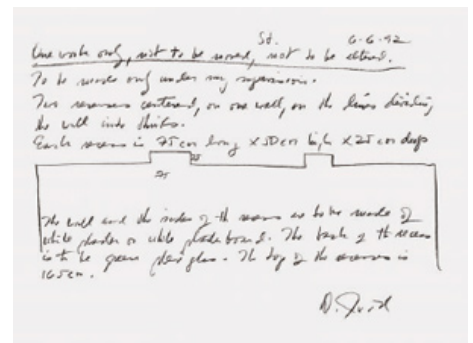 St. 6-6-92
One work only, not to be moved, not to be altered.
To be made only under my supervision.
Two recesses centered, on one wall, on the lines dividing
the wall into thirds.
Each recess is 75 cm long x 50 cm high x 25 cm deep
25
75
The wall and the inside of the recess are to be made of
white plaster or white plaster board. The back of the recess
is to be green plexiglass. The top of the recesses is
165 cm.
D. Judd